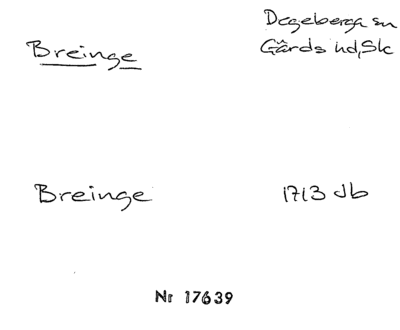 Breinge
Degeberga sn
Gärds hd, Sk
Breinge 1713 Jb
Nr 17639